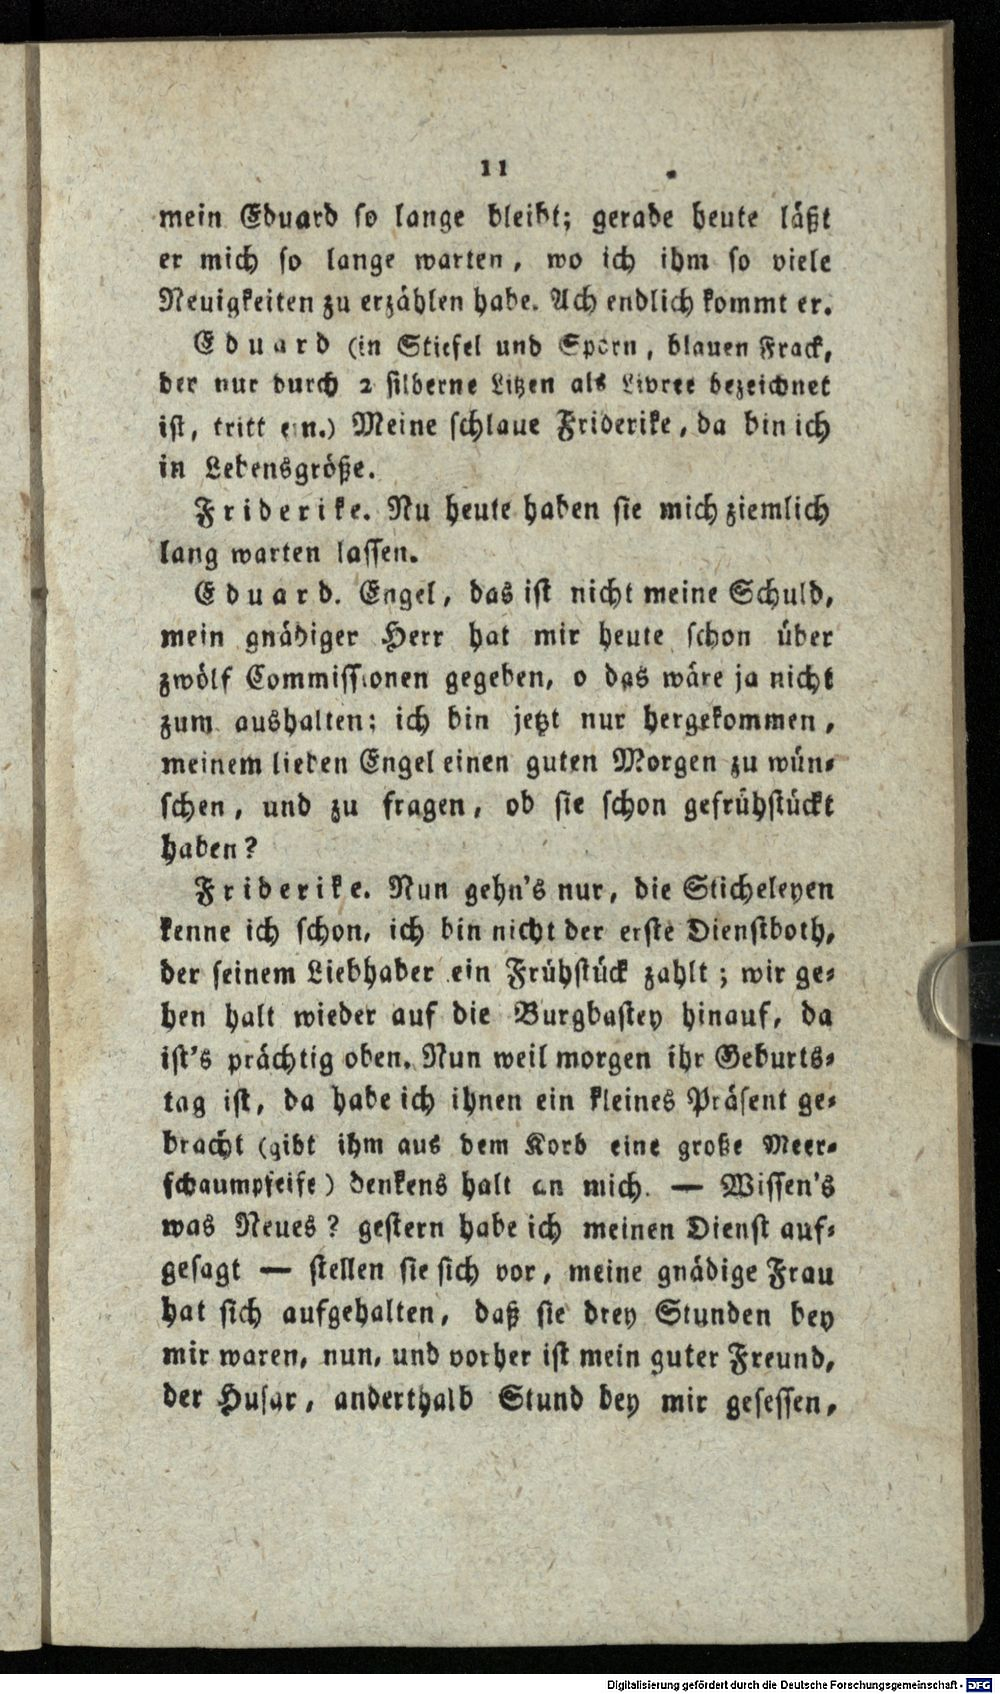 11
mein Eduard so lange bleibt; gerade heute läßt
er mich so lange warten, wo ich ihm so viele
Neuigkeiten zu erzählen habe. Ach endlich kommt er.
Eduard (in Stiefel und Sporn, blauen Frack,
der nur durch 2 silberne Litzen als Livree bezeichnet
ist, tritt ein.) Meine schlaue Friderike, da bin ich
in Lebensgröße.
Friderike. Nu heute haben sie mich ziemlich
lang warten lassen.
Eduard. Engel, das ist nicht meine Schuld,
mein gnädiger Herr hat mir heute schon über
zwölf Commissionen gegeben, o das wäre ja nicht
zum aushalten; ich bin jetzt nur hergekommen,
meinem lieben Engel einen guten Morgen zu wün-
schen, und zu fragen, ob sie schon gefrühstückt
haben?
Friderike. Nun gehn's nur, die Sticheleyen
kenne ich schon, ich bin nicht der erste Dienstboth,
der seinem Liebhaber ein Frühstück zahlt; wir ge-
hen halt wieder auf die Burgbastey hinauf, da
ist's prächtig oben. Nun weil morgen ihr Geburts-
tag ist, da habe ich ihnen ein kleines Präsent ge-
bracht (gibt ihm aus dem Korb eine große Meer-
schaumpfeife) denkens halt an mich. — Wissen's
was Neues? gestern habe ich meinen Dienst auf-
gesagt — stellen sie sich vor, meine gnädige Frau
hat sich aufgehalten, daß sie drey Stunden bey
mir waren, nun, und vorher ist mein guter Freund,
der Husar, anderthalb Stund bey mir gesessen,
Digitalisierung gefördert durch die Deutsche Forschungsgemeinschaft - DFG